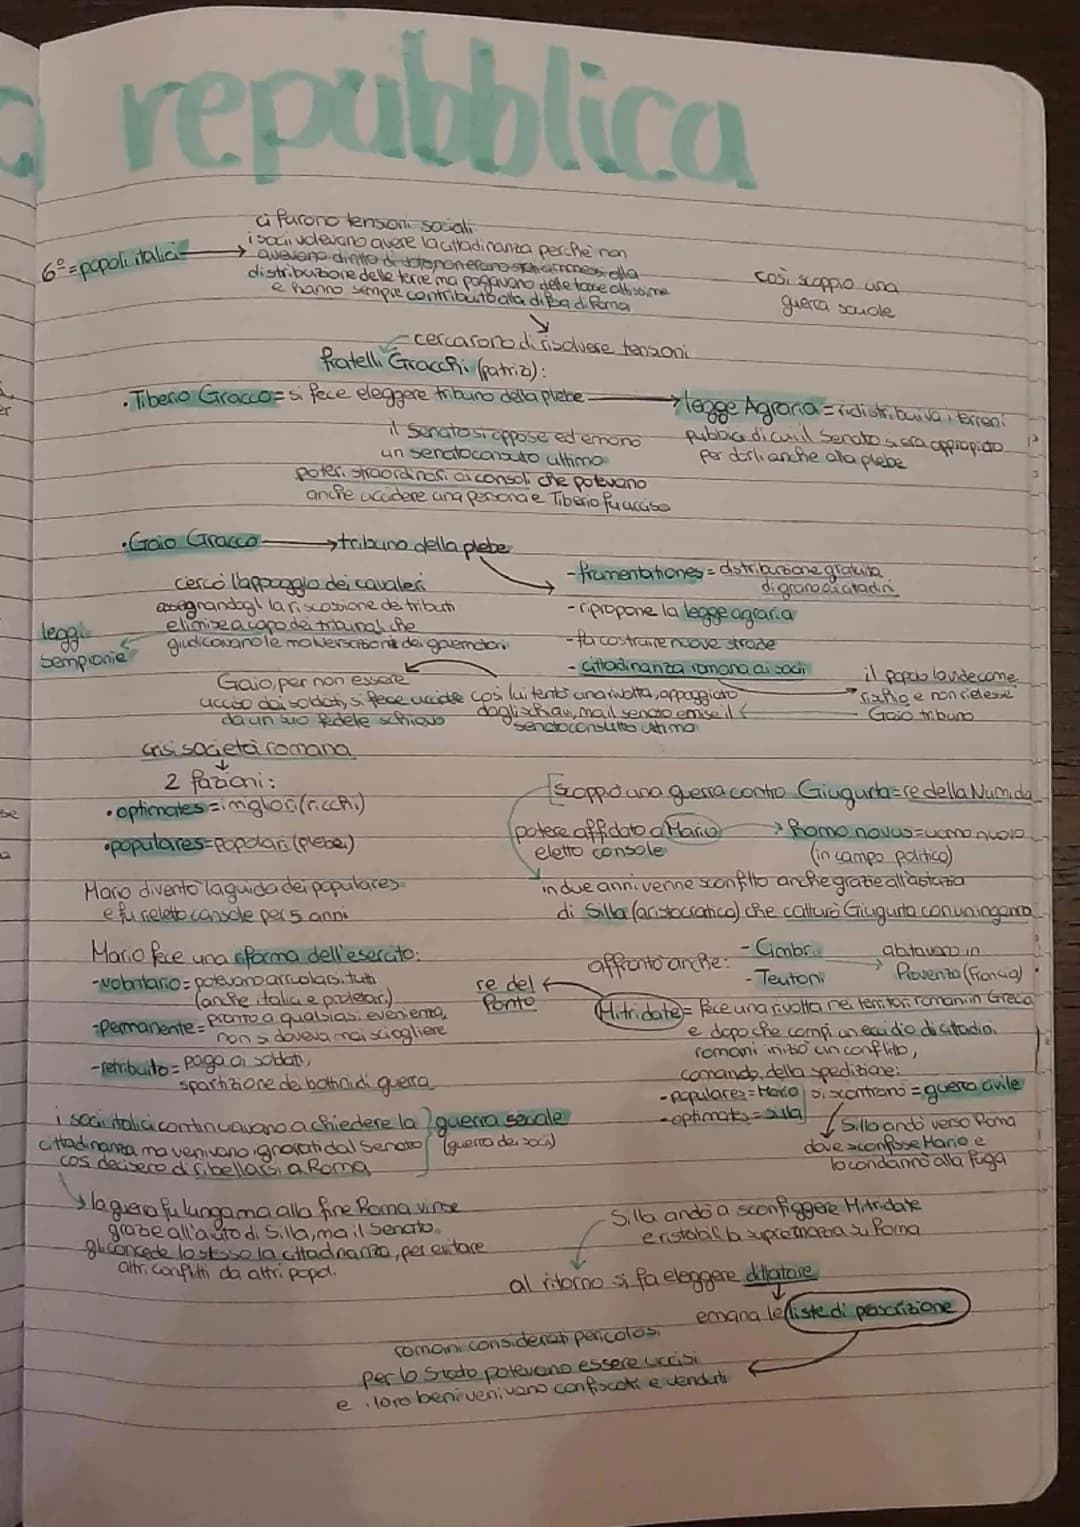 repubblica
ci furono tensioni sociali
6° = popoli italici → i socii volevano avere la cittadinanza perchè non
avevano diritto di voto, non erano ammessi alla
distribuzione delle terre ma pagavano delle tasse altissime
e hanno sempre contribuito alla difesa di Roma
così scoppiò una
guerra sociale
cercarono di risolvere tensioni
fratelli Gracchi (patrizi):
• Tiberio Gracco = si fece eleggere tribuno della plebe → legge Agraria = ridistribuiva i terreni
pubblici di cui il Senato si era appropiato
per darli anche alla plebe
il Senato si oppose ed emanò
un senatoconsulto ultimo
poteri straordinari ai consoli che potevano
anche uccidere una persona e Tiberio fu ucciso
• Gaio Gracco → tribuno della plebe
- frumentationes = distribuzione gratuita
di grano ai cittadini
- ripropone la legge agraria
- fa costruire nuove strade
- cittadinanza romana ai socii
cercò l'appoggio dei cavalieri
assegnandogli la riscossione dei tributi
e li mise a capo dei tribunali che
giudicavano le malversazioni dei governatori
leggi
sempronie
il popolo la vide come
rischio e non rielesse
Gaio tribuno
così lui tentò una rivolta, appoggiato
dagli schiavi, ma il senato emise il
senatoconsulto ultimo
Gaio, per non essere
ucciso dai soldati, si fece uccidere
da un suo fedele schiavo
crisi società romana
2 fazioni:
• optimates = i migliori (ricchi)
• populares = popolari (plebei)
Mario diventò la guida dei populares
e fu rieletto console per 5 anni
scoppiò una guerra contro Giugurta = re della Numidia
potere affidato a Mario → Homo novus = uomo nuovo
eletto console
(in campo politico)
in due anni venne sconfitto anche grazie all'astuzia
di Silla (aristocratica) che catturò Giugurta con un inganno
Mario fece una riforma dell'esercito:
- volontario = potevano arruolarsi tutti
(anche italici e proletari)
- permanente = pronto a qualsiasi evenienza,
non si doveva mai sciogliere
- retribuito = paga ai soldati,
spartizione dei bottini di guerra
affrontò anche:
- Cimbri
- Teutoni
abitavano in
Provenza (Francia)
re del
Ponto
Mitridate = fece una rivolta nei territori romani in Grecia
e dopo che compì un eccidio di cittadini
romani iniziò un conflitto,
comando della spedizione:
- populares = Mario
- optimates = Silla
si scontrano = guerra civile
Silla andò verso Roma
dove sconfisse Mario e
lo condannò alla fuga
i socii italici continuavano a chiedere la
cittadinanza ma venivano ignorati dal Senato
così decisero di ribellarsi a Roma
guerra sociale
(guerra dei socii)
la guerra fu lunga ma alla fine Roma vinse
grazie all'aiuto di Silla, ma il Senato
gli concede lo stesso la cittadinanza, per evitare
altri conflitti da altri popoli.
Silla andò a sconfiggere Mitridate
e ristabilì la supremazia su Roma
al ritorno si fa eleggere dittatore
emana le liste di proscrizione
romani considerati pericolosi
per lo Stato potevano essere uccisi
e i loro beni venivano confiscati e venduti